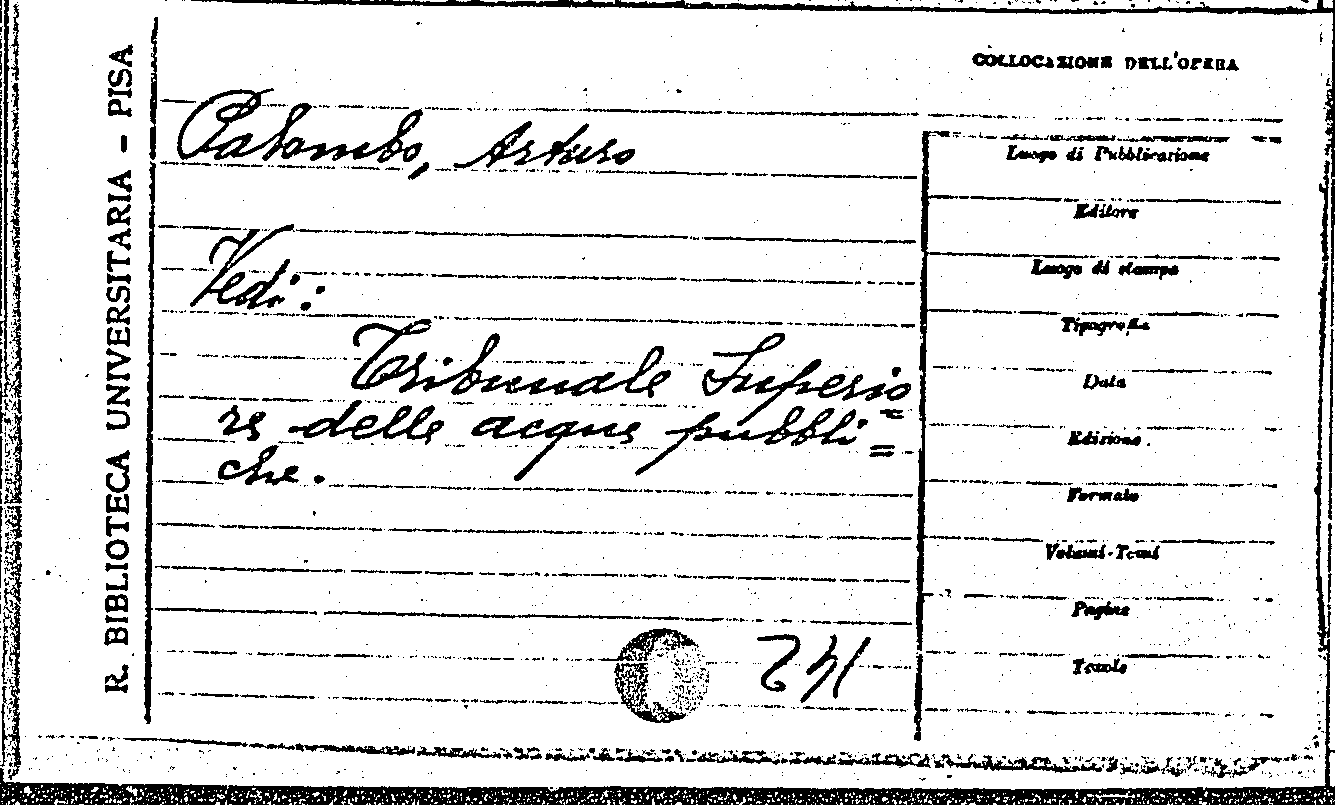 R. BIBLIOTECA UNIVERSITARIA - PISA
COLLOCAZIONE DELL'OPERA
Palombo, Arturo
Vedi:
Tribunale Superio=
re delle acque pubbli=
che.
241
Luogo di Pubblicazione
Editore
Luogo di stampa
Tipografia
Data
Edizione
Formato
Volumi-Tomi
Pagine
Tavole